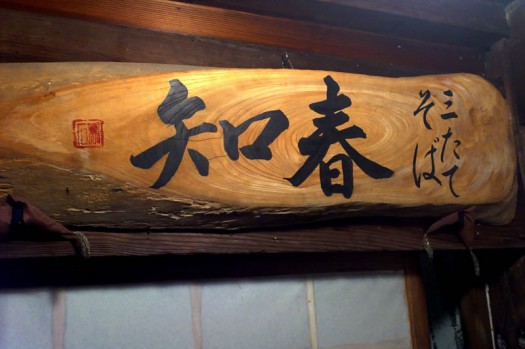 三たて
そば
春知